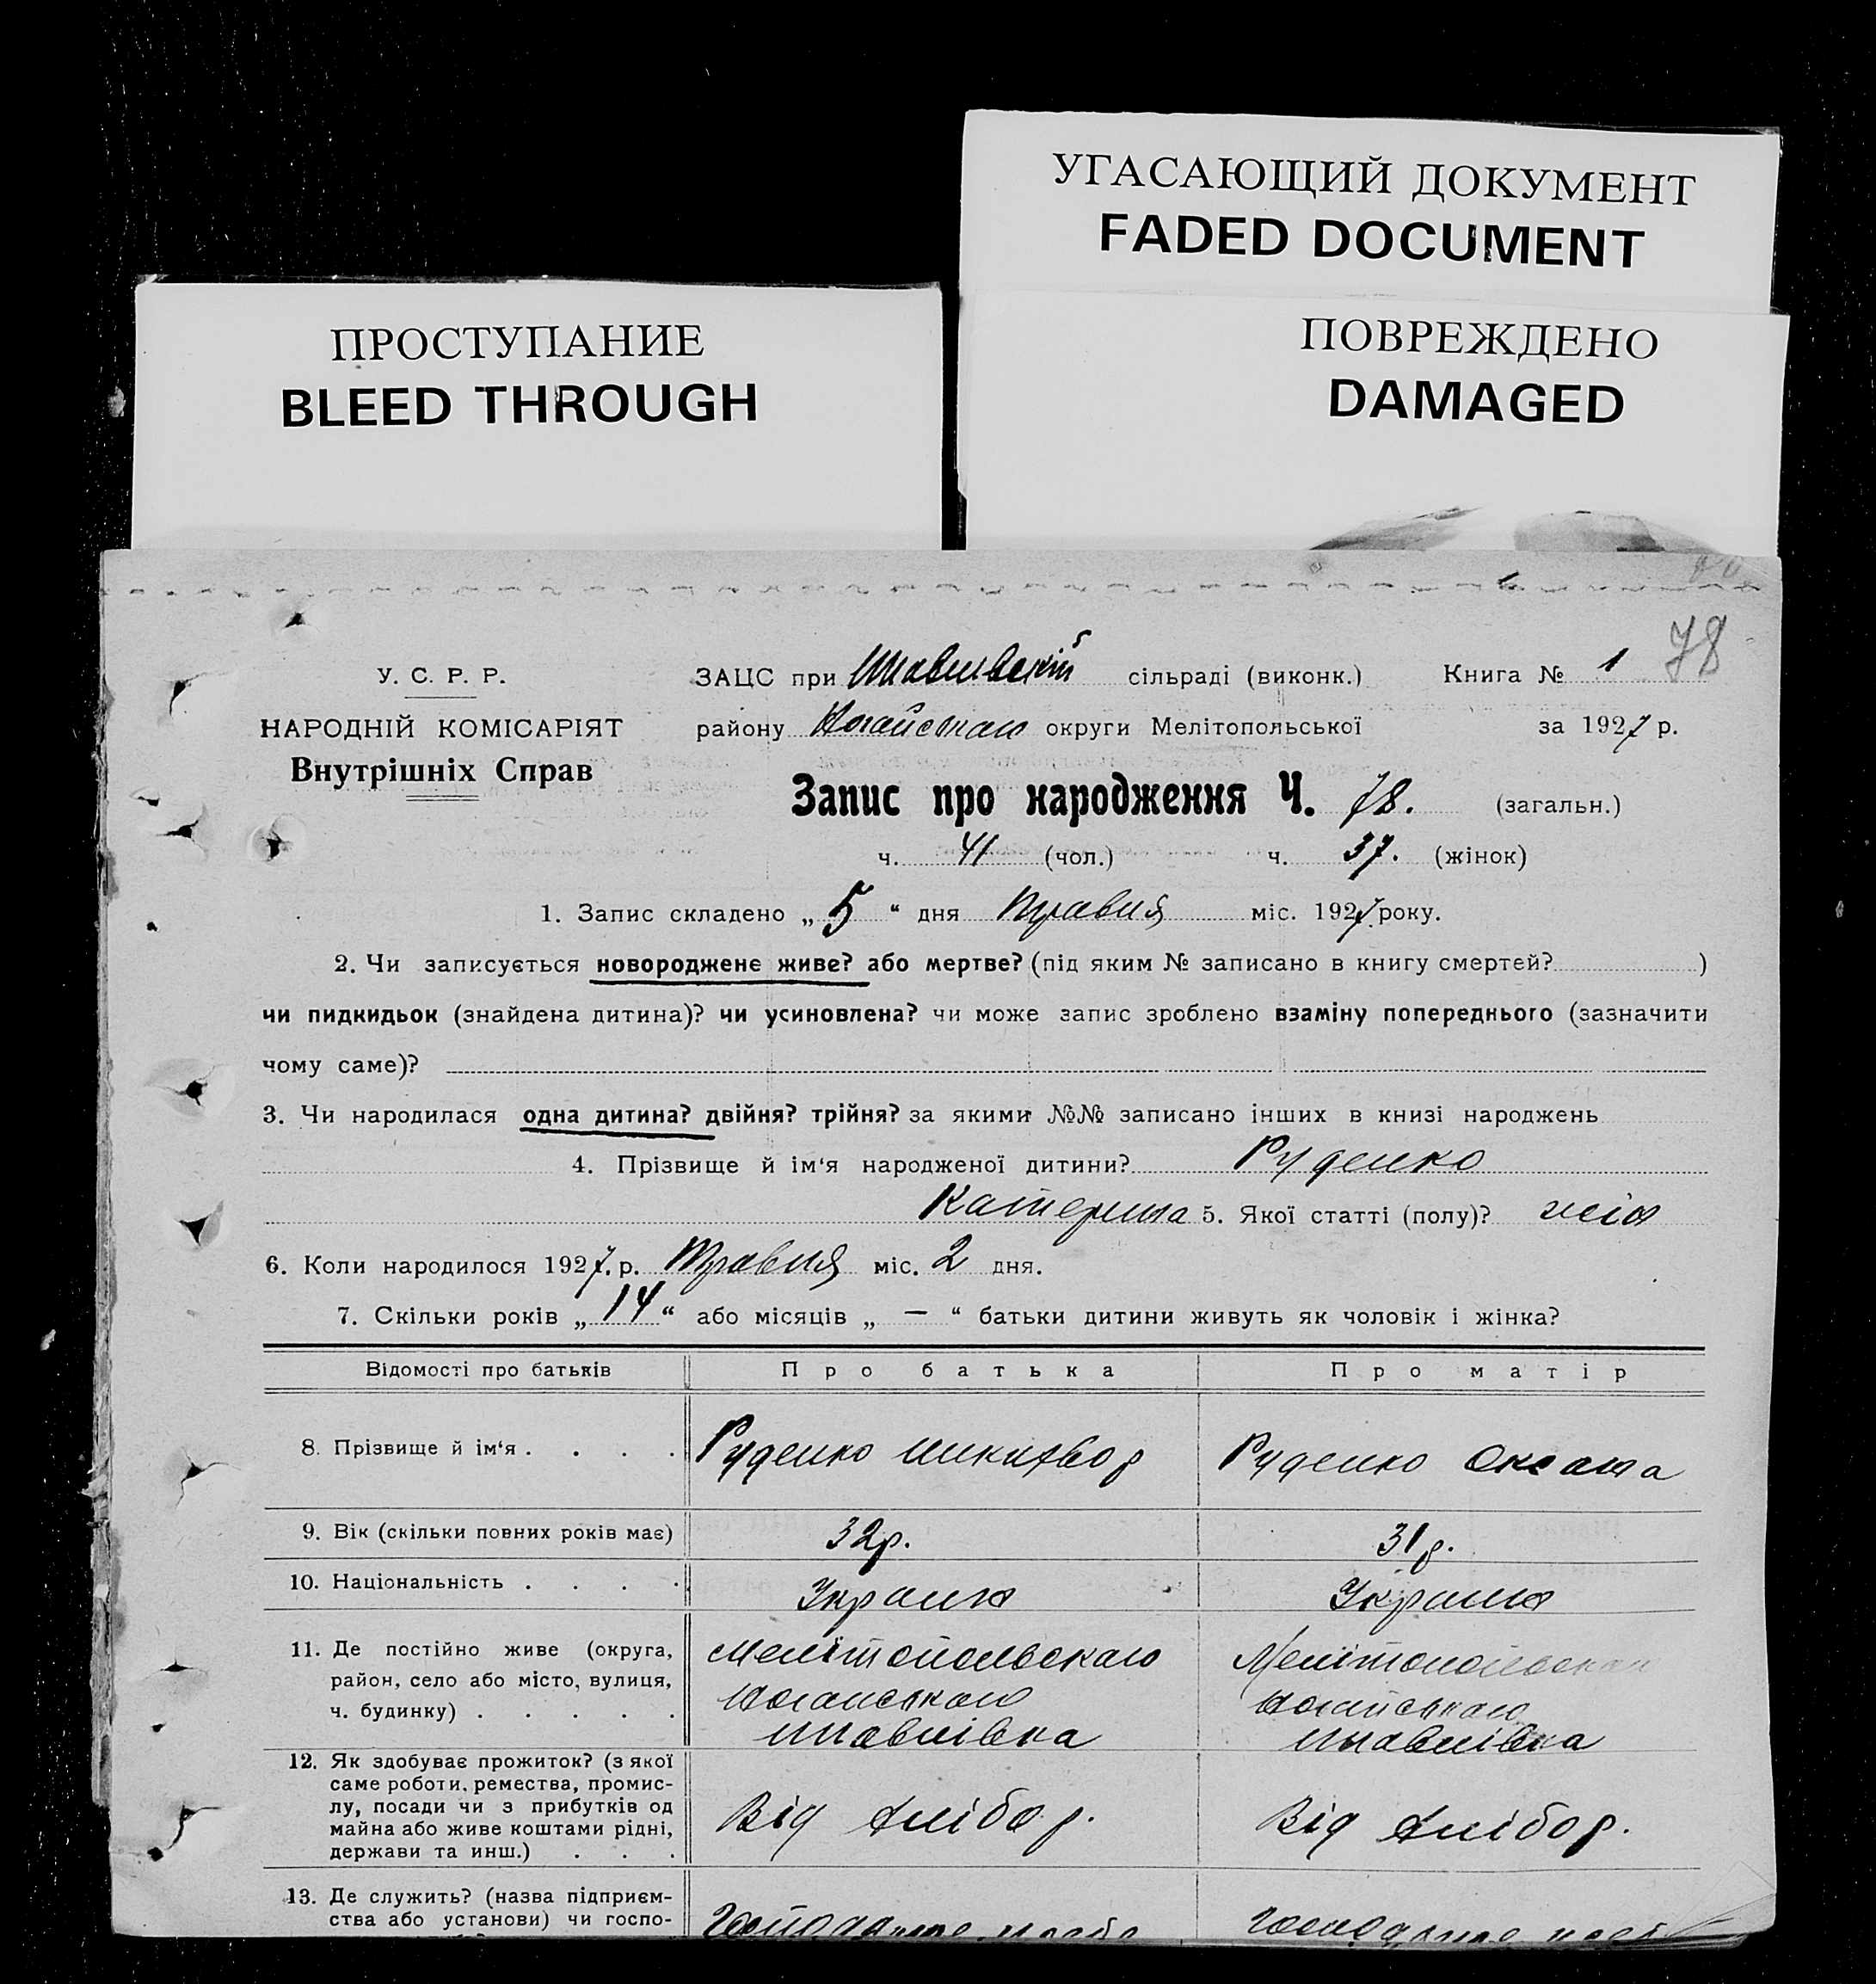 УГАСАЮЩИЙ ДОКУМЕНТ
FADED DOCUMENT
ПРОСТУПАНИЕ
BLEED THROUGH
ПОВРЕЖДЕНО
DAMAGED
78
У. С. Р. Р.
НАРОДНІЙ КОМІСАРІЯТ
Внутрішніх Справ
ЗАЦС при сільраді (виконк.) Книга № 1
району Ногайського округи Мелітопольської за 1927 р.
Запис про народження Ч. 78. (загальн.)
ч. 41 (чол.) ч. 37. (жінок)
1. Запис складено „ 5 “ дня травня міс. 1927 року.
2. Чи записується новороджене живе? або мертве? (під яким № записано в книгу смертей? )
чи пидкидьок (знайдена дитина)? чи усиновлена? чи може запис зроблено взаміну попереднього (зазначити
чому саме)?
3. Чи народилася одна дитина? двійня? трійня? за якими №№ записано інших в книзі народжень
4. Прізвище й ім‘я народженої дитини? Руденко
Катерина 5. Якої статті (полу)?
6. Коли народилося 1927. р. Травня міс. 2 дня.
7. Скільки років „ 14 “ або місяців „ — “ батьки дитини живуть як чоловік і жінка?
Відомості про батьків Про батька Про матір
8. Прізвище й ім‘я . . . . Руденко Руденко Оксана
9. Вік (скільки повних років має) 32р. 31р.
10. Національність . . . .
11. Де постійно живе (округа,
район, село або місто, вулиця,
ч. будинку) . . . . .
Мелітопольського
12. Як здобуває прожиток? (з якої
саме роботи, ремества, промис-
лу, посади чи з прибутків од
майна або живе коштами рідні,
держави та инш.) . . .
Від хлібор. Від хлібор.
13. Де служить? (назва підприєм-
ства або установи) чи госпо-